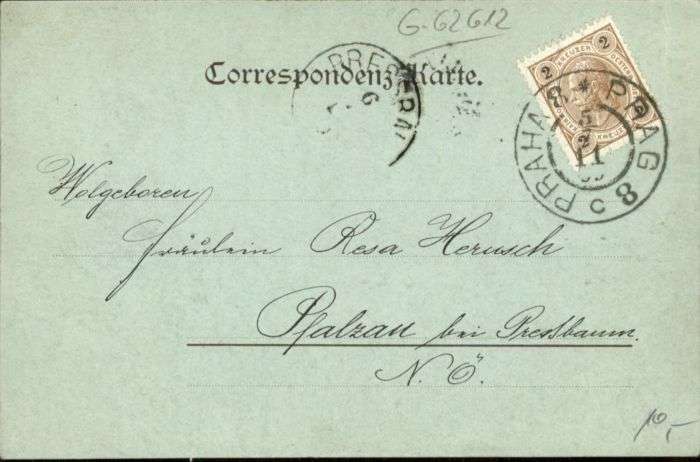 G-62612
Correspondenz-Karte.
2 KREUZER 2
PRAHA 8 * PRAG 8 c
5
2
11
PRES
6
Wolgeboren
Fräulein Resa Herusch
Pfalzau bei Pressbaum.
N. Ö.
10,-